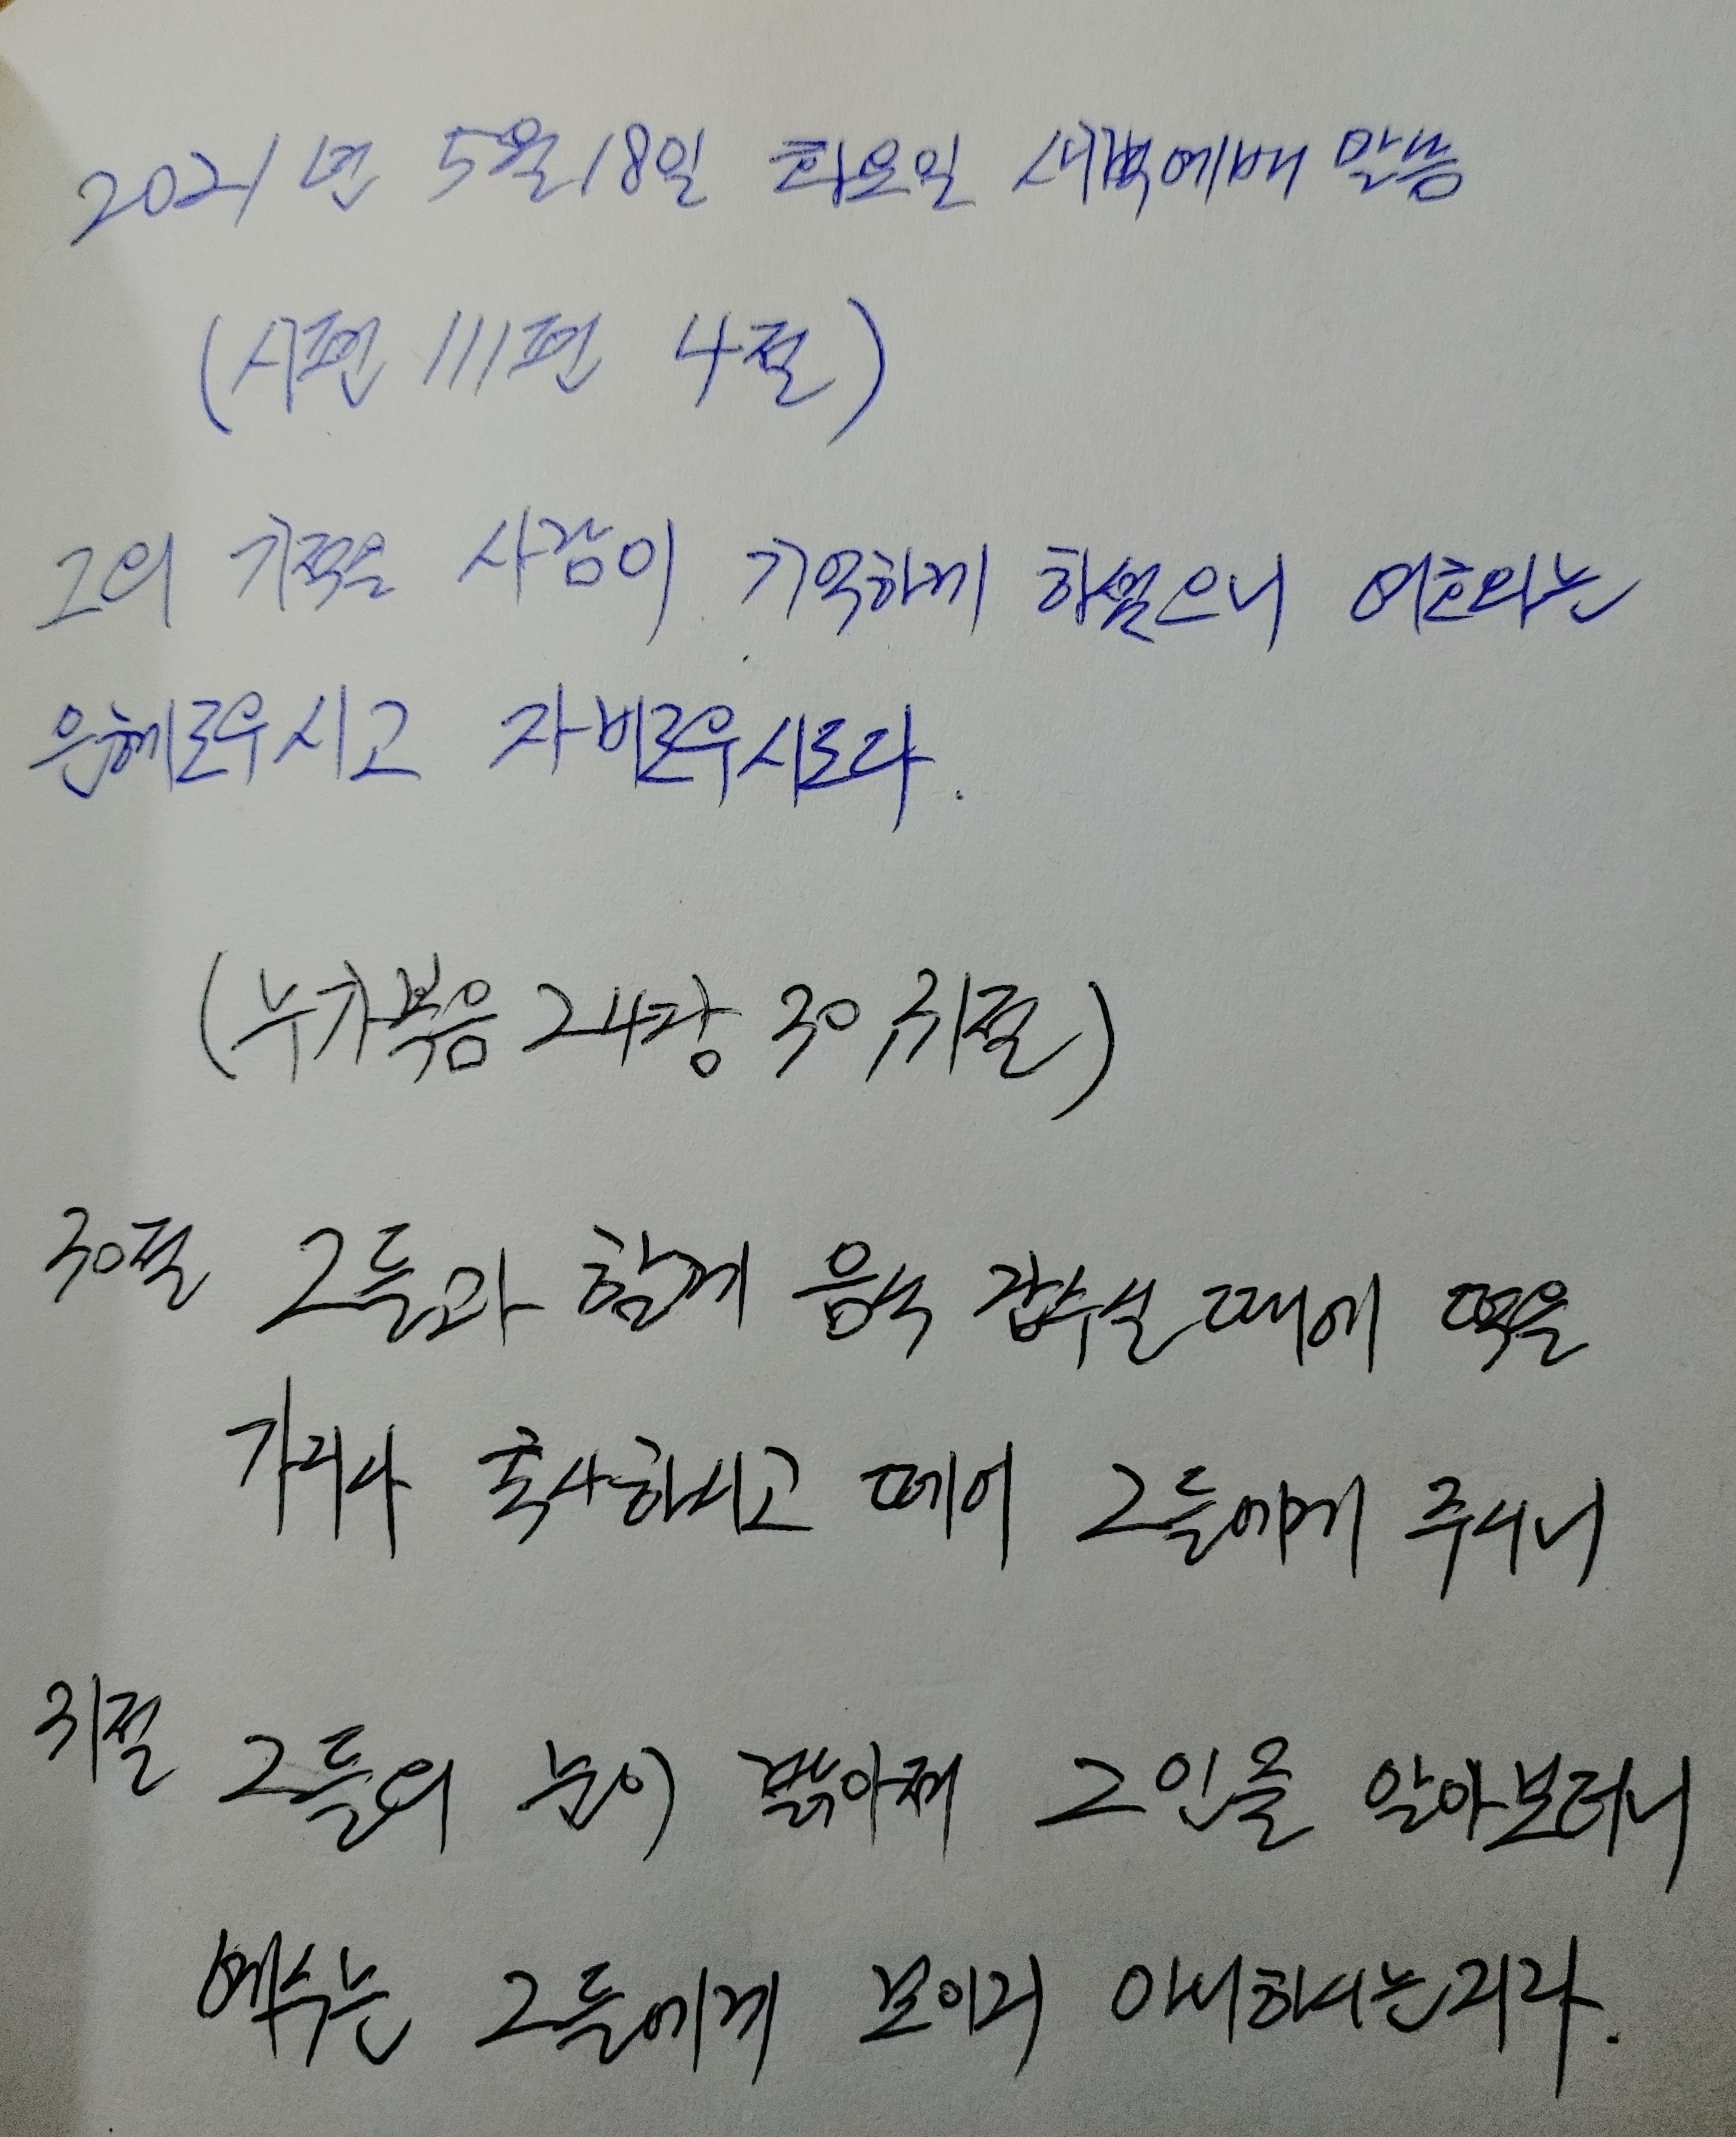 2021년 5월18일 화요일 새벽예배 말씀
(시편 111편 4절)
그의 기적을 사람이 기억하게 하셨으니 여호와는
은혜로우시고 자비로우시도다.
(누가복음 24장 30, 31절)
30절 그들과 함께 음식 잡수실 때에 떡을
가지사 축사하시고 떼어 그들에게 주시니
31절 그들의 눈이 밝아져 그인줄 알아보더니
예수는 그들에게 보이지 아니하시는지라.